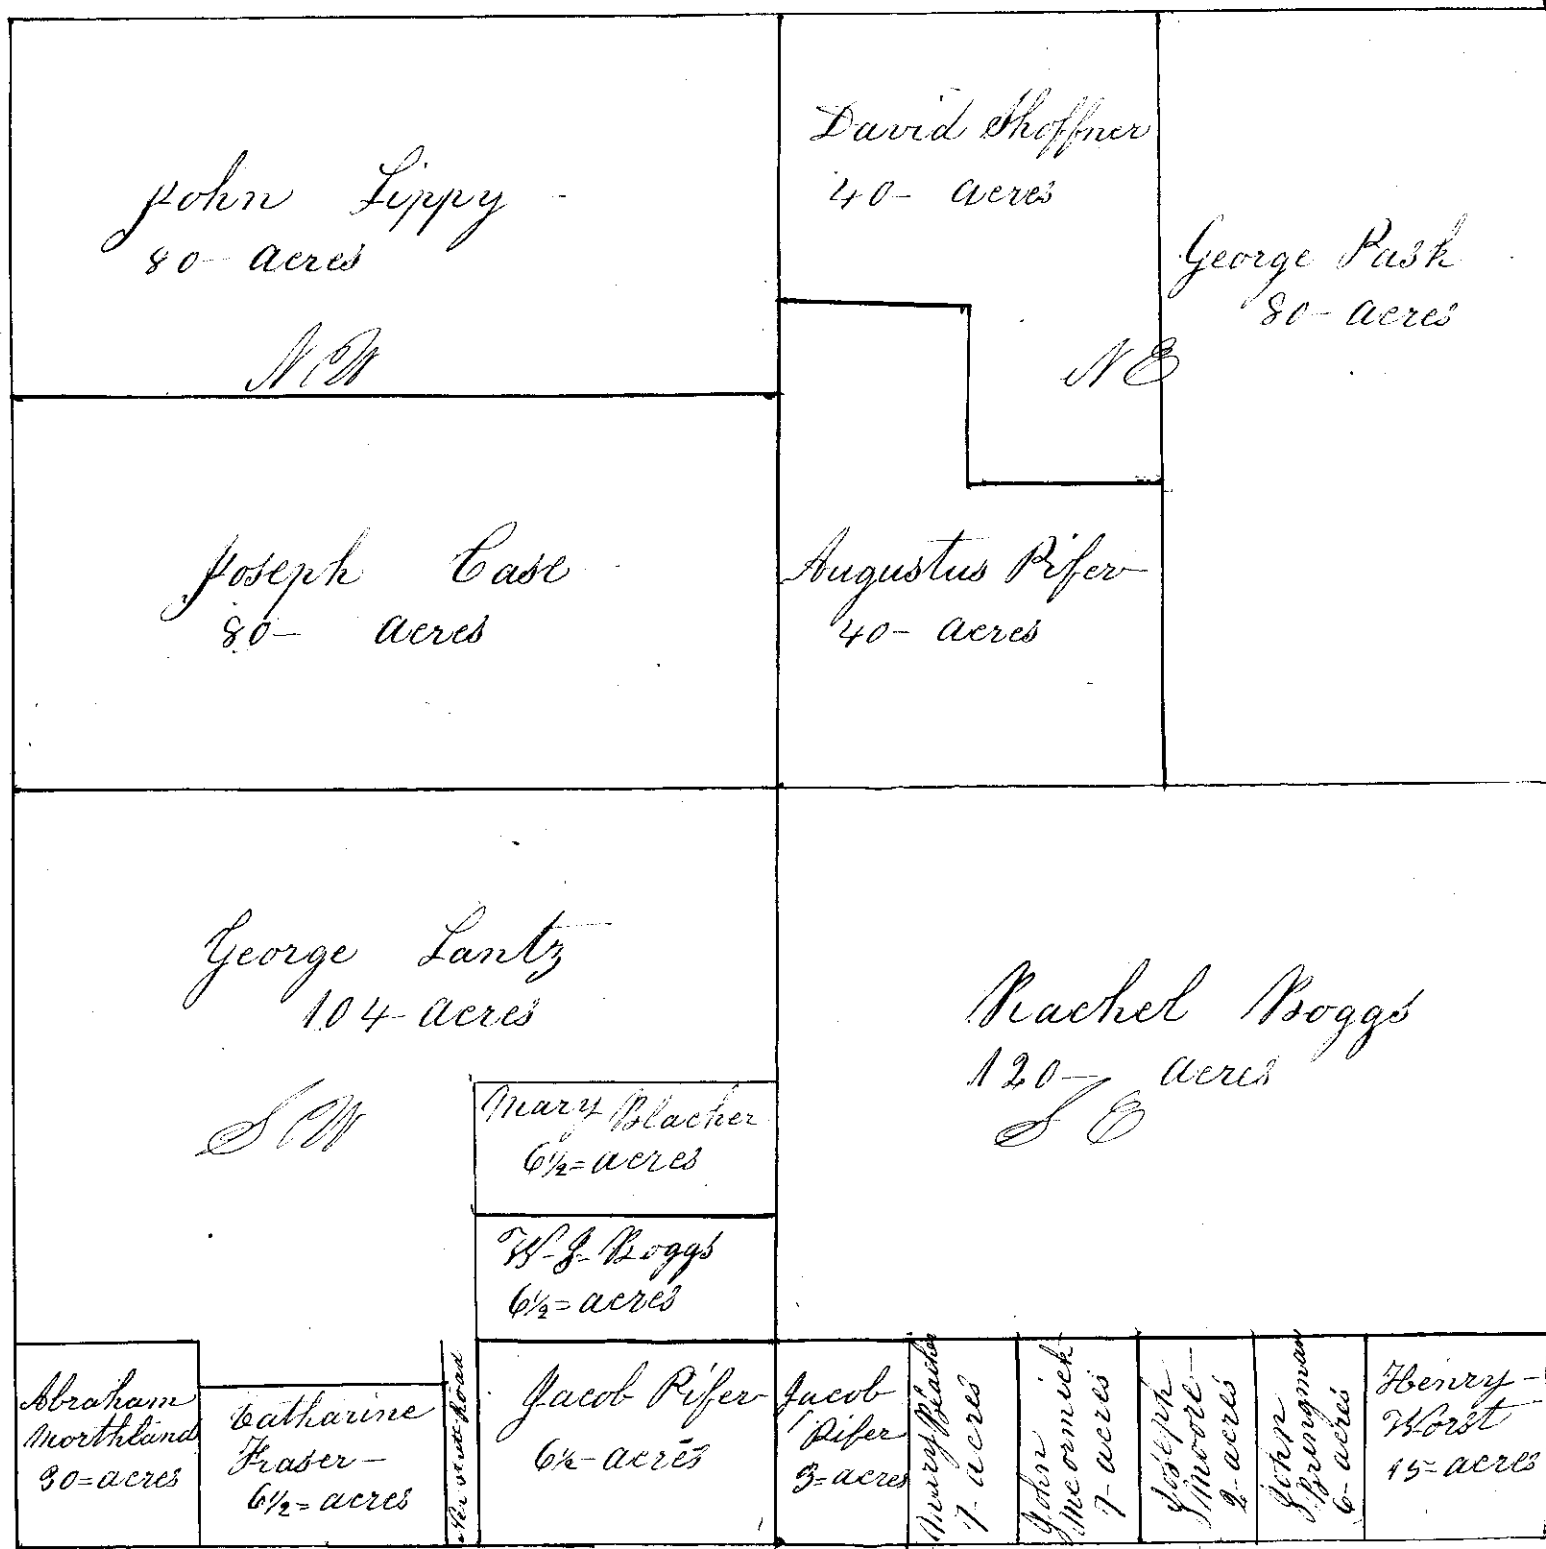 John Lippy -
80- acres
N W
David Shoffner
40- acres
George Pask
80- acres
N E
Joseph Case
80- acres
Augustus Pifer
40- acres
George Lantz
104- acres
S W
Rachel Boggs
120- acres
S E
Mary Blacher
6½= acres
W- J- Boggs
6½= acres
Abraham
Morthland
30= acres
Catharine
Fraser-
6½= acres
Road
Jacob Pifer
6½- acres
Jacob
Pifer
3= acres
Mary Blacher
7- acres
John
Mccormick
7- acres
Joseph
Moore-
2- acres
John
Bringman
6- acres
Henry-
Worst
15= acres